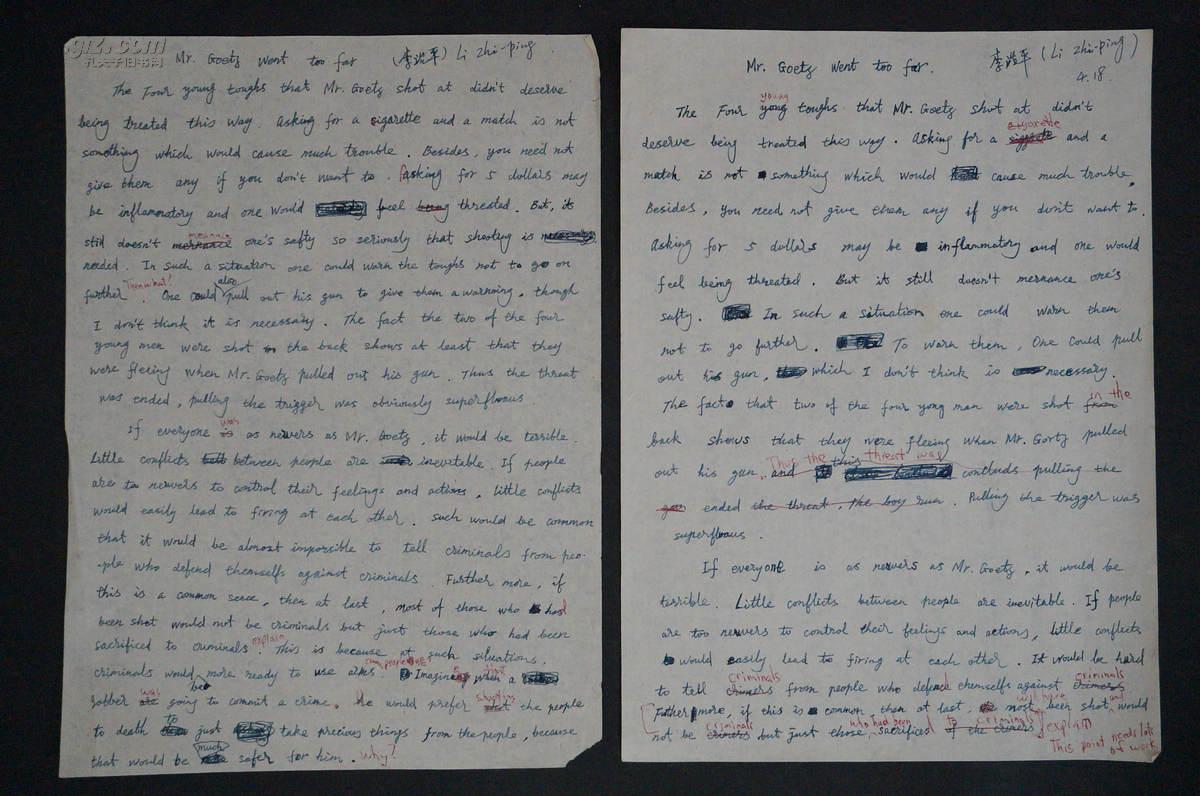 Mr. Goetz went too far (李滋平) Li Zhi-ping
The Four young toughs that Mr. Goetz shot at didn't deserve
being treated this way. Asking for a cigarette and a match is not
something which would cause much trouble. Besides, you need not
give them any if you don't want to. Asking for 5 dollars may
be inflammatory and one would feel being threated. But, it
menance
still doesn't mernance one's safty so seriously that shooting is
needed. In such a situation one could warn the toughs not to go on
further. Then what? One could also pull out his gun to give them a warnning, though
I don't think it is necessary. The fact the two of the four
young men were shot in the back shows at least that they
were fleeing when Mr. Goetz pulled out his gun. Thus the threat
was ended, pulling the trigger was obviously superfluous.
was
If everyone is as nervers as Mr. Goetz, it would be terrible.
Little conflicts between people are inevitable. If people
are to nervers to control their feelings and actions, little conflicts
would easily lead to firing at each other. Such would be common
that it would be almost imporsible to tell criminals from peo-
ple who defend themselfs against criminals. Further more, if
this is a common scece, then at last, most of those who had
been shot would not be criminals but just those who had been
sacrificed to criminals. explain This is because at such situations.
criminals would be more ready to use arms. Imagine when a
robber was going to commit a crime. He would prefer shooting the people
to death to just take precious things from the people, because
that would be much safer for him. Why?
Mr. Goetz went too far. 李滋平 (Li Zhi-ping)
4.18.
young
The Four yong toughs that Mr. Goetz shot at didn't
cigarette
deserve being treated this way. Asking for a and a
match is not something which would cause much trouble.
Besides, you need not give them any if you don't want to.
Asking for 5 dollars may be inflammatory and one would
feel being threated. But it still doesn't mernance one's
safty. In such a situation one could warn them
not to go further. To warn them, One could pull
out his gun, which I don't think is necessary.
The fact that two of the four yong man were shot from in the
back shows that they were fleeing when Mr. Gortz pulled
Thus the this threat was
out his gun, and contluds pulling the
gun ended the threat, the boy run. Pulling the trigger was
superfluous.
If everyone is as nervers as Mr. Goetz, it would be
terrible. Little conflicts between people are inevitable. If people
are too nervers to control their feelings and actions, little conflicts
would easily lead to firing at each other. It would be hard
criminals criminals
to tell crimers from people who defend themselfs against crimers
Futher more, if this is common, then at last, most been shot would
criminals who had been to criminals
not be crimers but just those sacrificed of the crimers. explain
This point needs lots
of work